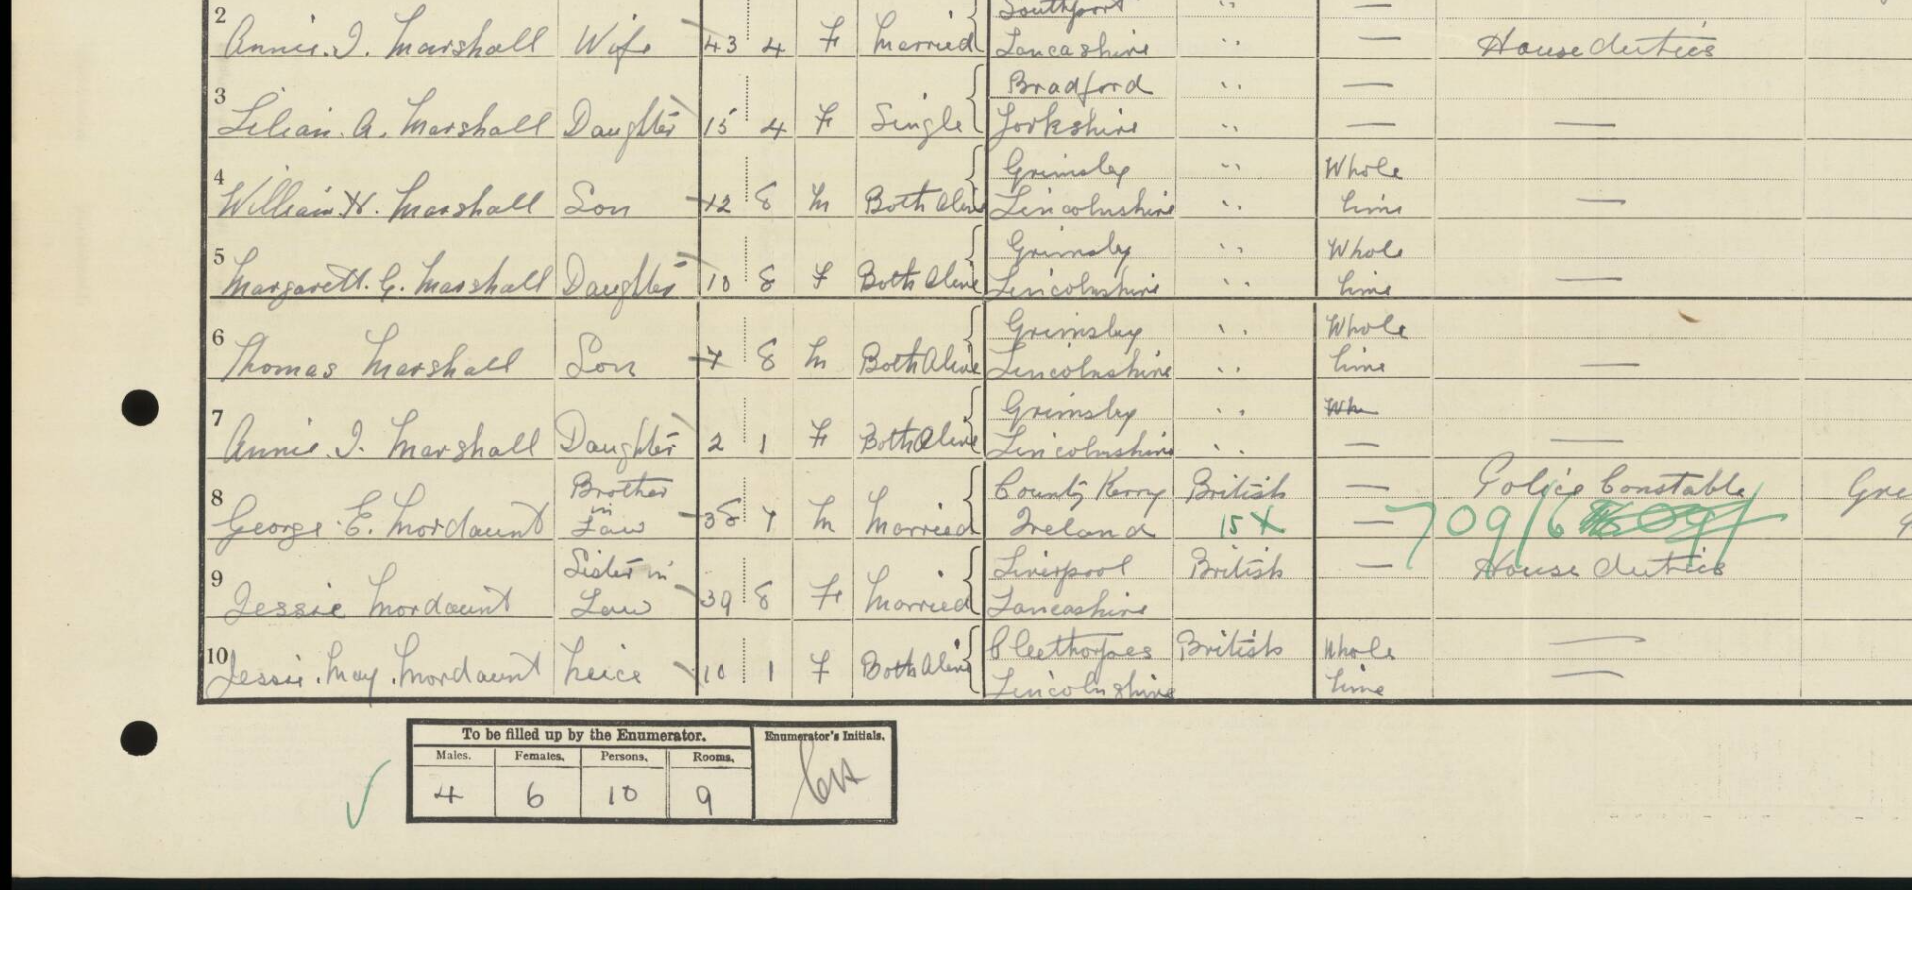 2 Southport
Annie. I. Marshall Wife 43 4 F Married Lancashire " — House duties
3 Bradford " —
Lilian. A. Marshall Daughter 15 4 F Single Yorkshire " — —
4 Grimsby " Whole
William. H. Marshall Son 12 8 M Both Alive Lincolnshire " Time —
5 Grimsby " Whole
Margarett. G. Marshall Daughter 10 8 F Both Alive Lincolnshire " Time —
6 Grimsby " Whole
Thomas Marshall Son 7 8 M Both Alive Lincolnshire " Time —
7 Grimsby " Wh
Annie. I. Marshall Daughter 2 1 F Both Alive Lincolnshire " — —
8 Brother County Kerry British — Police Constable Gre
in
George. E. Mordaunt Law 38 7 M Married Ireland 15 X — 709/6
9 Sister in Liverpool British — House duties
Jessie Mordaunt Law 39 8 F Married Lancashire
10 Cleethorpes British Whole —
Jessie. May. Mordaunt Neice 10 1 F Both Alive Lincolnshire Time —
To be filled up by the Enumerator. Enumerator's Initials.
Males. Females. Persons. Rooms.
4 6 10 9